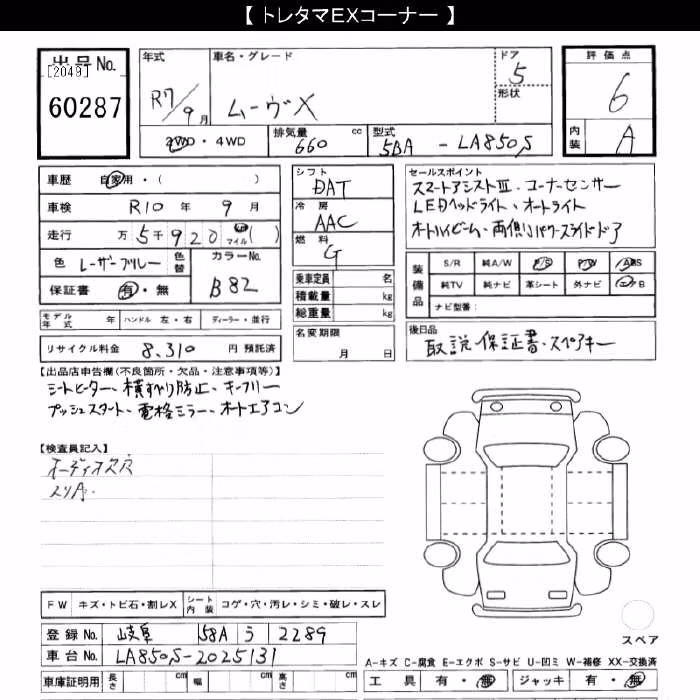 【 トレタマEXコーナー 】
出品No.
[2049]
60287
年式
R7/9月
車名・グレード
ムーヴX
ドア
5
形状
評価点
6
内装
A
2WD・4WD
排気量
660 cc
型式
5BA - LA850S
車歴 自家用・( )
車検 R10年 9月
走行 万 5千920 マイル( )
色 レーザーブルー 色替 カラーNo. B82
保証書 有・無
シフト
DAT
冷房
AAC
燃料
G
乗車定員 名
積載量 kg
総重量 kg
セールスポイント
スマートアシストⅢ・コーナーセンサー
LEDヘッドライト・オートライト
オートハイビーム・両側パワースライドドア
装備品
S/R 純A/W P/S P/W ABS
純TV 純ナビ 革シート 外ナビ
ナビ型番:
モデル年式 年 ハンドル 左・右 ディーラー・並行
リサイクル料金 8,310 円 預託済
名変期限
月 日
後日品
取説・保証書・スペアキー
【出品店申告欄(不良箇所・欠品・注意事項等)】
シートヒーター・横すべり防止・キーフリー
プッシュスタート・電格ミラー・オートエアコン
【検査員記入】
オーディオ穴
FW キズ・トビ石・割レX シート内装 コゲ・穴・汚レ・シミ・破レ・スレ
登録No. 岐阜 58A う 2289
車台No. LA850S-2025131
車庫証明用 長さ cm 幅 cm 高さ cm
スペア
A-キズ C-腐食 E-エクボ S-サビ U-凹ミ W-補修 XX-交換済
工具 有・無 ジャッキ 有・無